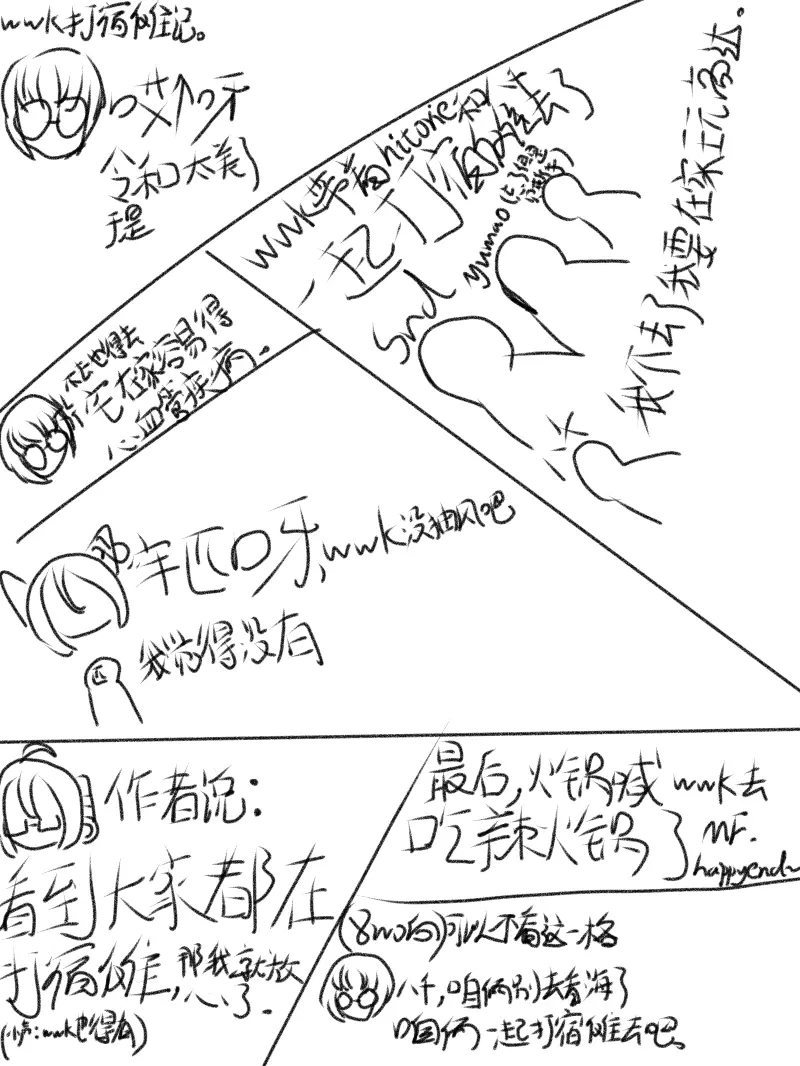 wwk打宿傩记。
哎个呀
令和太美了
于是
wwk带着hitorie和
一起打宿傩去了
snd
yumao
我不去了我要在家玩高达。
不去也得去
宅在家容易得
心血管疾病.
牢匹呀,wwk没抽风吧
匹
我觉得没有
作者说:
看到大家都在
打宿傩,那我就放
心了.
(小声:wwk也得有)
最后,火锅喊wwk去
吃辣火锅了
happyend~
(8wo向)可以不看这一格
八千,咱俩别去看海了
咱俩一起打宿傩去吧。